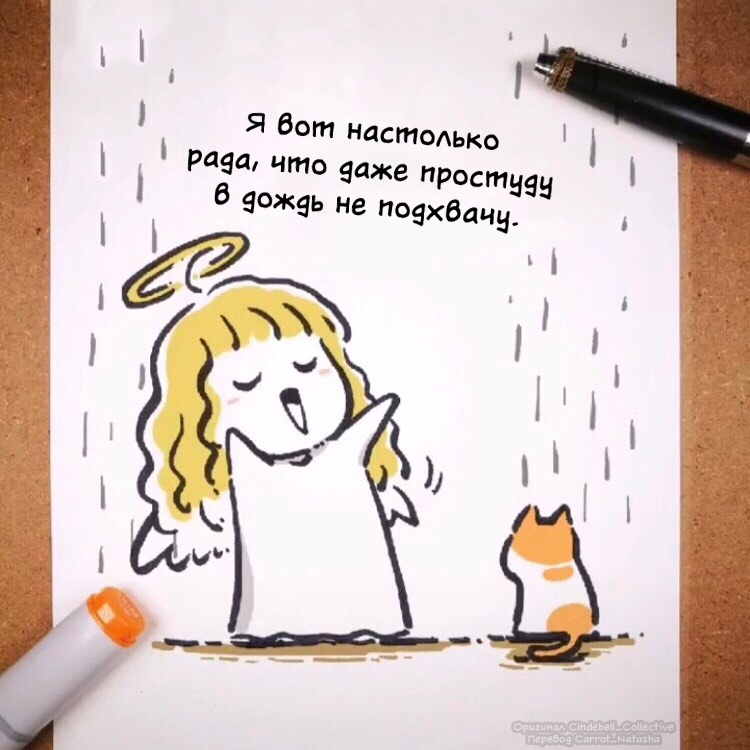 Я вот настолько
рада, что даже простуду
в дождь не подхвачу.
Оригинал Cindebell_Collective
Перевод Carrot_Natasha